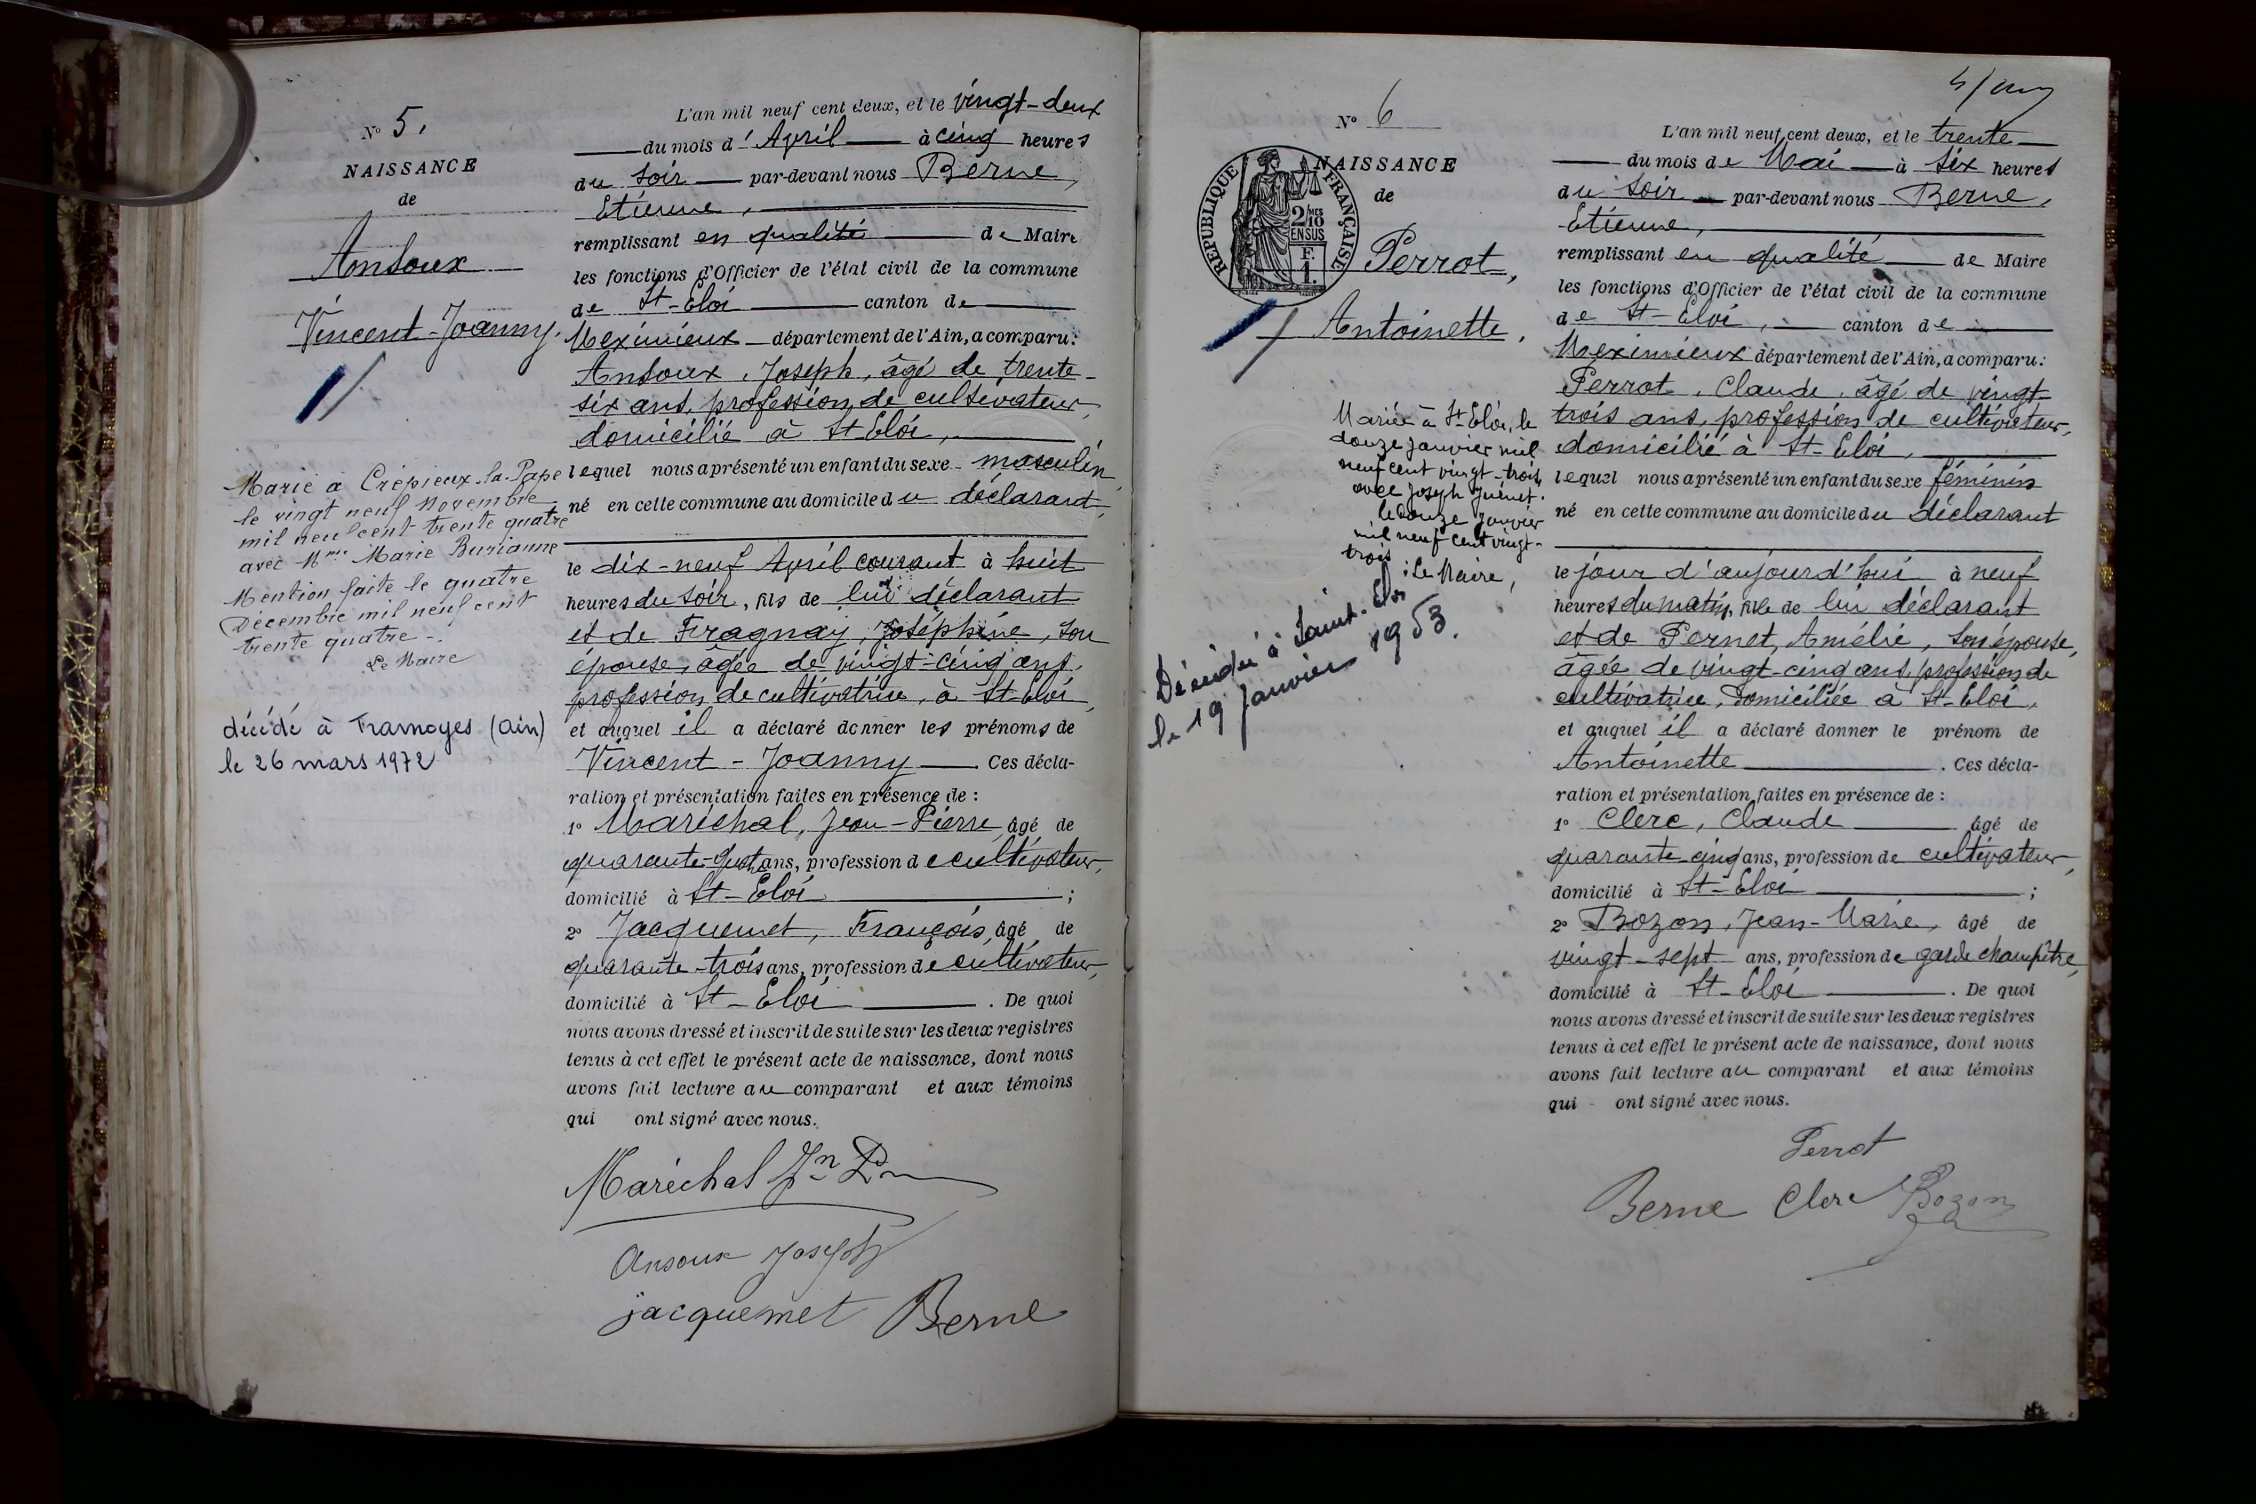 N° 5.
NAISSANCE
de
Ansoux
Vincent-Joanny.
Marié à Crépieux-la-Pape
le vingt neuf Novembre
mil neuf cent trente quatre
avec Mme Marie Burianne
Mention faite le quatre
Décembre mil neuf cent
trente quatre -.
Le Maire
décédé à Tramoyes (Ain)
le 26 mars 1972
L'an mil neuf cent deux, et le vingt-deux
du mois d' Avril à cinq heures
du soir par-devant nous Berne,
Etienne,
remplissant en qualité de Maire
les fonctions d'Officier de l'état civil de la commune
de St-Eloi canton de
Meximieux département de l'Ain, a comparu:
Ansoux, Joseph, âgé de trente-
six ans, profession de cultivateur,
domicilié à St Eloi,
lequel nous a présenté un enfant du sexe masculin,
né en cette commune au domicile du déclarant,
le dix-neuf Avril courant à huit
heures du soir, fils de lui déclarant
et de Fragnay, Joséphine, son
épouse, âgée de vingt-cinq ans,
profession de cultivatrice, à St-Eloi,
et auquel il a déclaré donner les prénoms de
Vincent - Joanny. Ces décla-
ration et présentation faites en présence de :
1° Maréchal, Jean-Pierre, âgé de
quarante-quatre ans, profession de cultivateur,
domicilié à St-Eloi ;
2° Jacquemet, François, âgé de
quarante-trois ans, profession de cultivateur,
domicilié à St-Eloi. De quoi
nous avons dressé et inscrit de suite sur les deux registres
tenus à cet effet le présent acte de naissance, dont nous
avons fait lecture au comparant et aux témoins
qui ont signé avec nous.
Maréchal Jn Pre
Ansoux Joseph
jacquemet Berne
N° 6
NAISSANCE
de
REPUBLIQUE FRANÇAISE
2 MES
10
EN SUS
F.
1.
Perrot,
Antoinette.
Mariée à St-Eloi, le
douze janvier mil
neuf cent vingt-trois,
avec Joseph Juénet.
le douze janvier
mil neuf cent vingt-
trois : Le Maire,
Décédée à Saint-Eloi
le 19 janvier 1953.
L'an mil neuf cent deux, et le trente
du mois de Mai à six heures
du soir par-devant nous Berne,
Etienne,
remplissant en qualité de Maire
les fonctions d'Officier de l'état civil de la commune
de St-Eloi, canton de
Meximieux département de l'Ain, a comparu:
Perrot, Claude, âgé de vingt
trois ans, profession de cultivateur,
domicilié à St-Eloi,
lequel nous a présenté un enfant du sexe féminin
né en cette commune au domicile du déclarant
le jour d'aujourd'hui à neuf
heures du matin, fille de lui déclarant
et de Pernet, Amélie, son épouse,
âgée de vingt-cinq ans, profession de
cultivatrice, domiciliée à St-Eloi,
et auquel il a déclaré donner le prénom de
Antoinette. Ces décla-
ration et présentation faites en présence de :
1° Clerc, Claude âgé de
quarante cinq ans, profession de cultivateur,
domicilié à St-Eloi ;
2° Bozon, Jean-Marie, âgé de
vingt-sept ans, profession de garde champêtre,
domicilié à St-Eloi. De quoi
nous avons dressé et inscrit de suite sur les deux registres
tenus à cet effet le présent acte de naissance, dont nous
avons fait lecture au comparant et aux témoins
qui ont signé avec nous.
Perrot
Berne Clerc Bozon